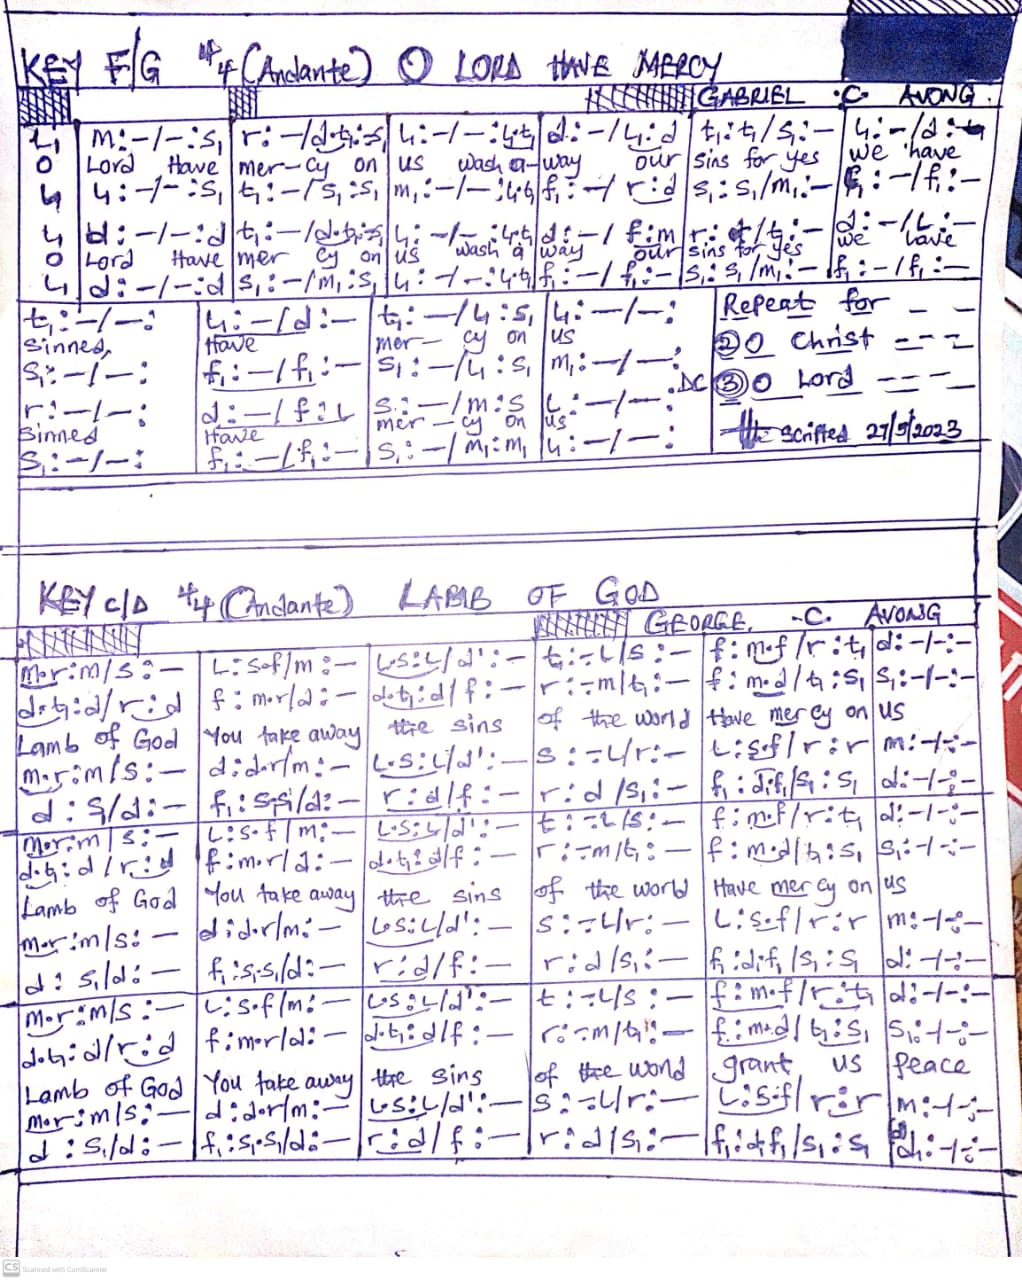 KEY F/G 4/4 (Andante) O LORD HAVE MERCY
GABRIEL .C. AVONG.
l₁ m:-/-:s₁ r:-/d.t₁:s₁ l₁:-/-:l₁.t₁ d:-/l₁:d t₁:t₁/s₁:- l₁:-/d:-
O Lord Have mer-cy on us wash a-way our sins for yes we have
l₁ l₁:-/-:s₁ t₁:-/s₁:s₁ m₁:-/-:l₁.t₁ f₁:-/r:d s₁:s₁/m₁:- f₁:-/f₁:-
l₁ d:-/-:d t₁:-/d.t₁:s₁ l₁:-/-:l₁.t₁ d:-/f:m r:d/t₁:- d:-/L:-
O Lord Have mer cy on us wash a way our sins for yes we have
l₁ d:-/-:d s₁:-/m₁:s₁ l₁:-/-:l₁.t₁ f₁:-/f₁:- s₁:s₁/m₁:- f₁:-/f₁:-
t₁:-/-: l₁:-/d:- t₁:-/l₁:s₁ l₁:-/-: Repeat for - -
Sinned, Have mer- cy on us
s₁:-/-: f₁:-/f₁:- s₁:-/l₁:s₁ m₁:-/-: ② O Christ - - -
r:-/-: d:-/f:L s:-/m:s L:-/-: DC ③ O Lord - - - -
Sinned Have mer- cy on us
s₁:-/-: f₁:-/f₁:- s₁:-/m₁:m₁ l₁:-/-: Scrifted 27/9/2023
KEY C/D 4/4 (Andante) LAMB OF GOD
GEORGE. -C. AVONG
m.r:m/s:- L:s.f/m:- L.s:L/d':- t:-.L/s:- f:m.f/r:t₁ d:-/-:-
d.t₁:d/r:d f:m.r/d:- d.t₁:d/f:- r:-.m/t₁:- f:m.d/t₁:s₁ s₁:-/-:-
Lamb of God You take away the sins of the world Have mercy on us
m.r:m/s:- d:d.r/m:- L.s:L/d':- s:-.L/r:- L:s.f/r:r m:-/-:-
d:s₁/d:- f₁:s₁.s₁/d:- r:d/f:- r:d/s₁:- f₁:d.f₁/s₁:s₁ d:-/-:-
m.r:m/s:- L:s.f/m:- L.s:L/d':- t:-.L/s:- f:m.f/r:t₁ d:-/-:-
d.t₁:d/r:d f:m.r/d:- d.t₁:d/f:- r:-.m/t₁:- f:m.d/t₁:s₁ s₁:-/-:-
Lamb of God You take away the sins of the world Have mercy on us
m.r:m/s:- d:d.r/m:- L.s:L/d':- s:-.L/r:- L:s.f/r:r m:-/-:-
d:s₁/d:- f₁:s₁.s₁/d:- r:d/f:- r:d/s₁:- f₁:d.f₁/s₁:s₁ d:-/-:-
m.r:m/s:- L:s.f/m:- L.s:L/d':- t:-.L/s:- f:m.f/r:t₁ d:-/-:-
d.t₁:d/r:d f:m.r/d:- d.t₁:d/f:- r:-.m/t₁:- f:m.d/t₁:s₁ s₁:-/-:-
Lamb of God You take away the sins of the world grant us peace
m.r:m/s:- d:d.r/m:- L.s:L/d':- s:-.L/r:- L:s.f/r:r m:-/-:-
d:s₁/d:- f₁:s₁.s₁/d:- r:d/f:- r:d/s₁:- f₁:d.f₁/s₁:s₁ d:-/-:-
CS Scanned with CamScanner